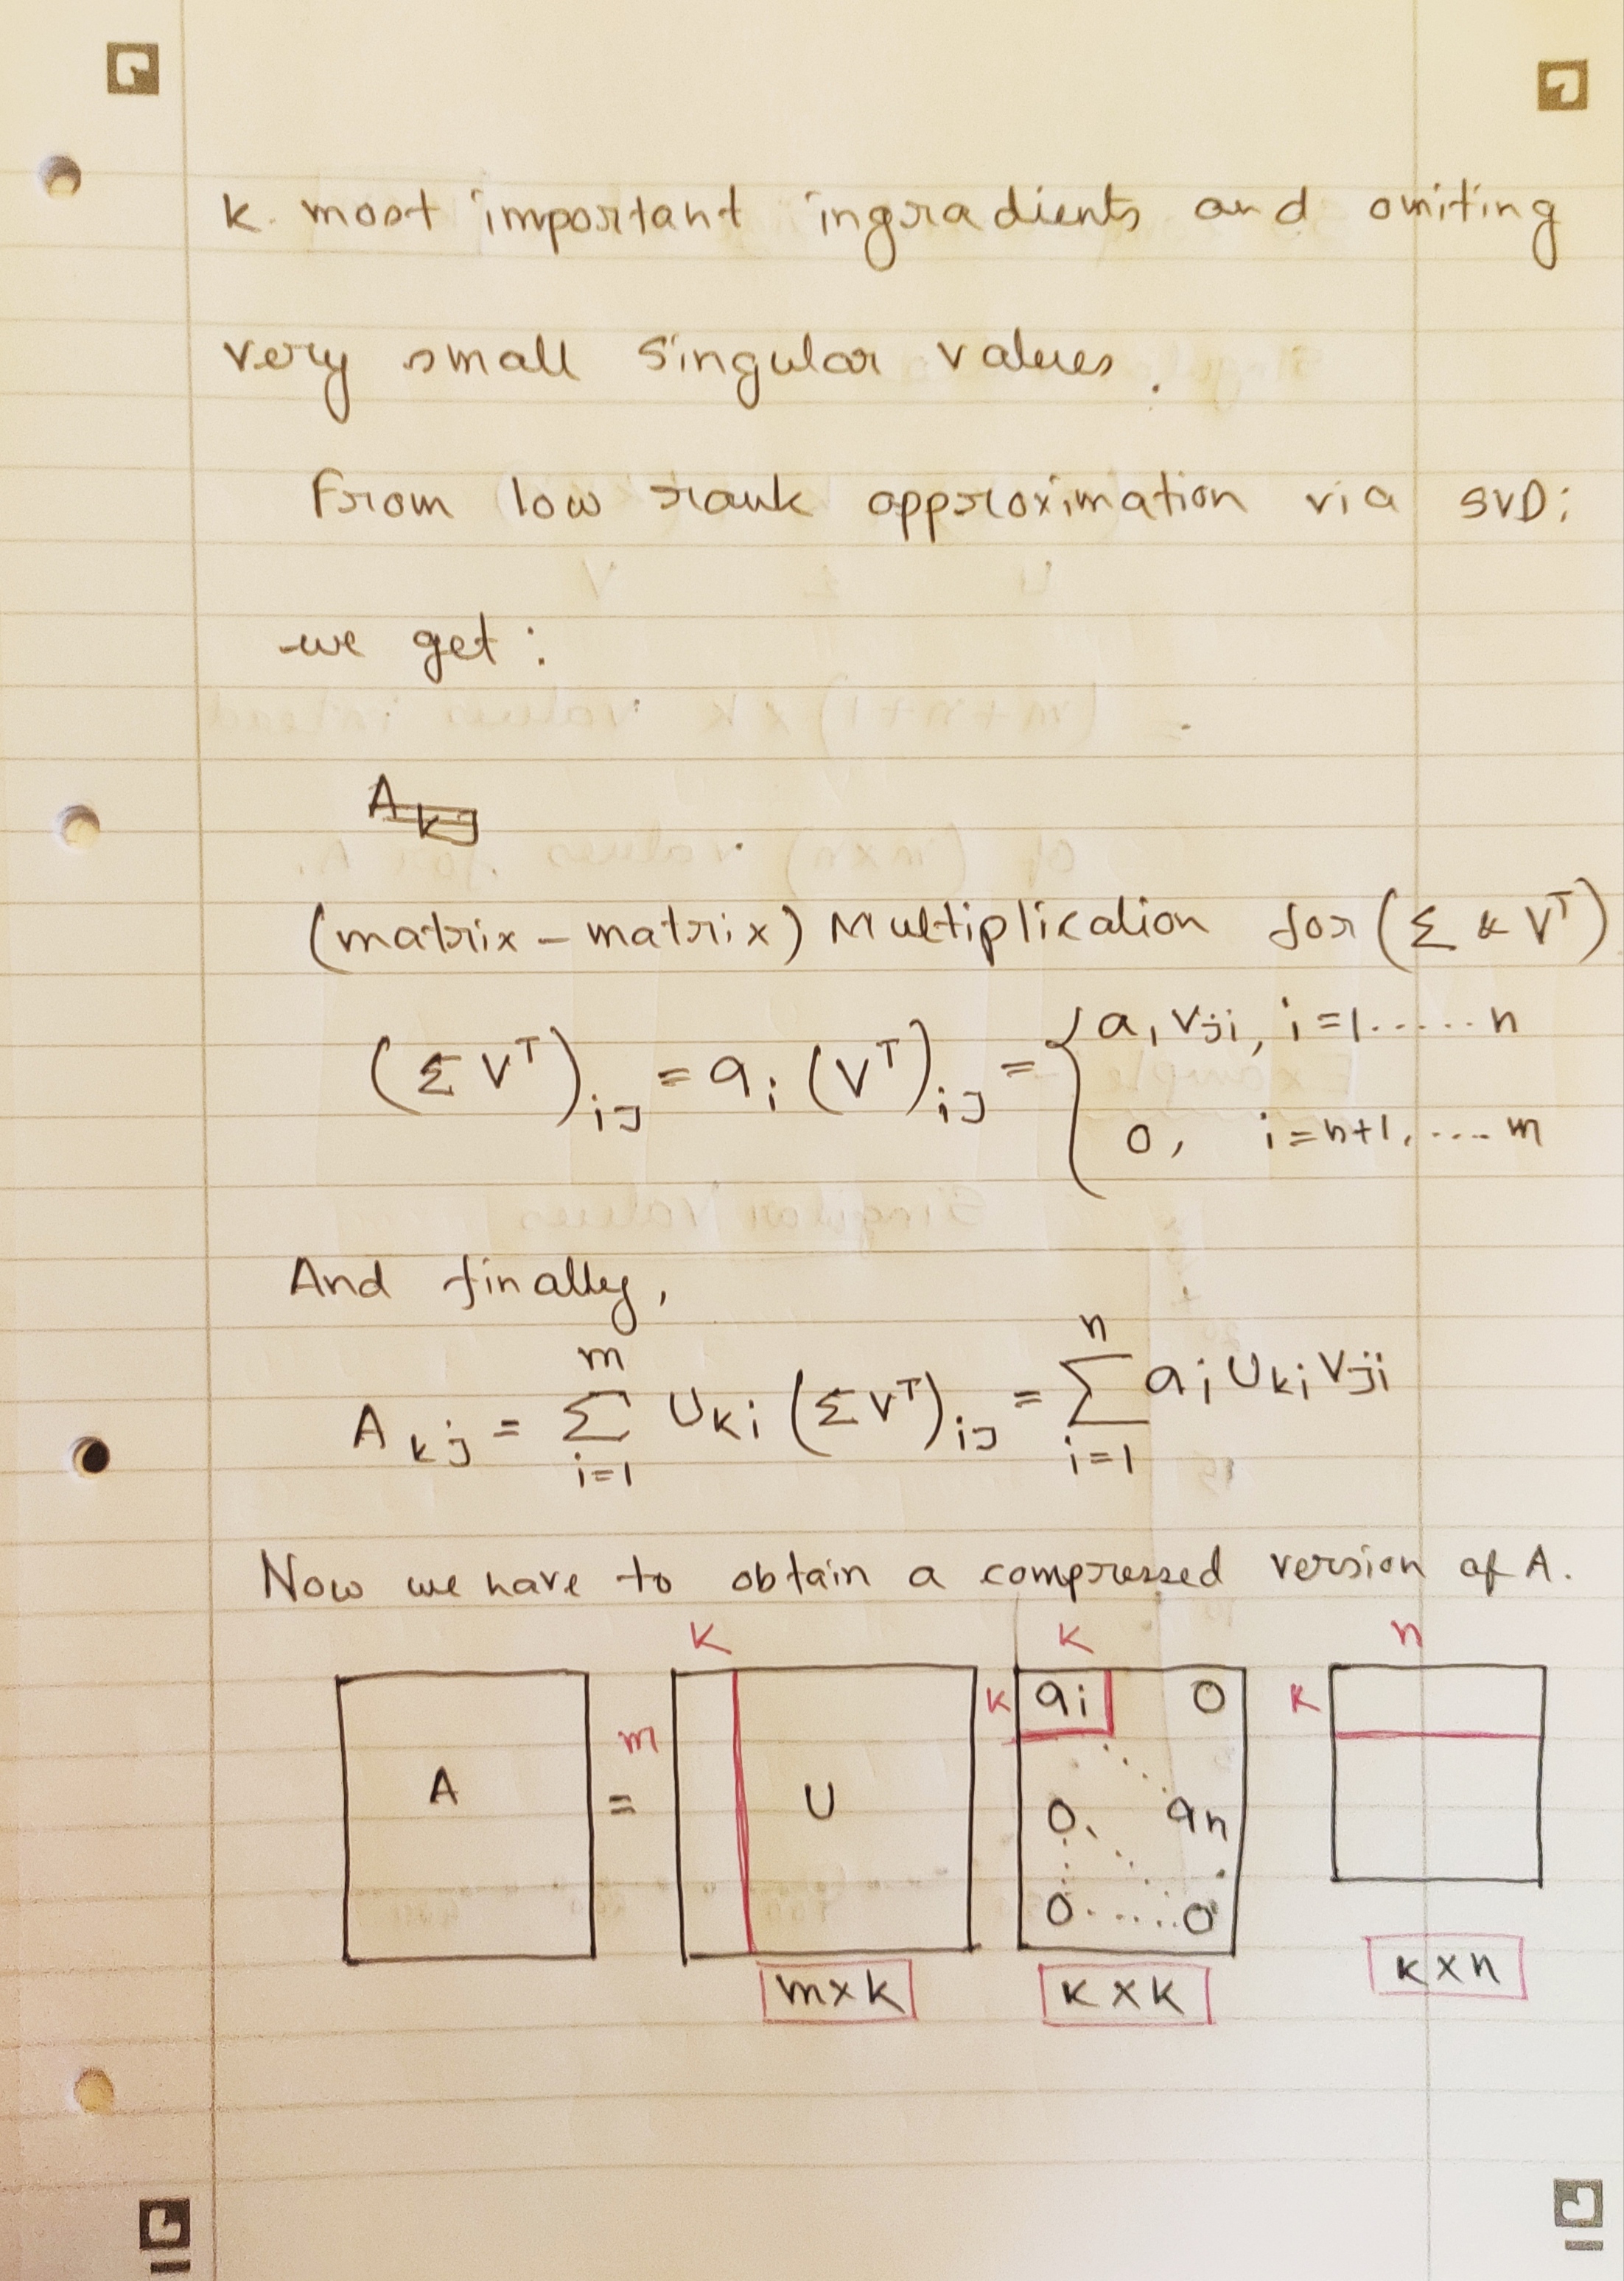 K most important ingradients and omiting
very small singular values.
From low rank approximation via SVD:
we get:
A kj
(matrix - matrix) Multiplication for (Σ & Vᵀ)
(ΣVᵀ)ij = ai (Vᵀ)ij = { ai vji, i=1......n
0, i=n+1, .... m
And finally,
Akj = Σ_{i=1}^{m} Uki (ΣVᵀ)ij = Σ_{i=1}^{n} ai Uki Vji
Now we have to obtain a compressed version of A.
K K n
A = m U K ai 0 K
0 an
0 ..... 0
m×k K×K K×n